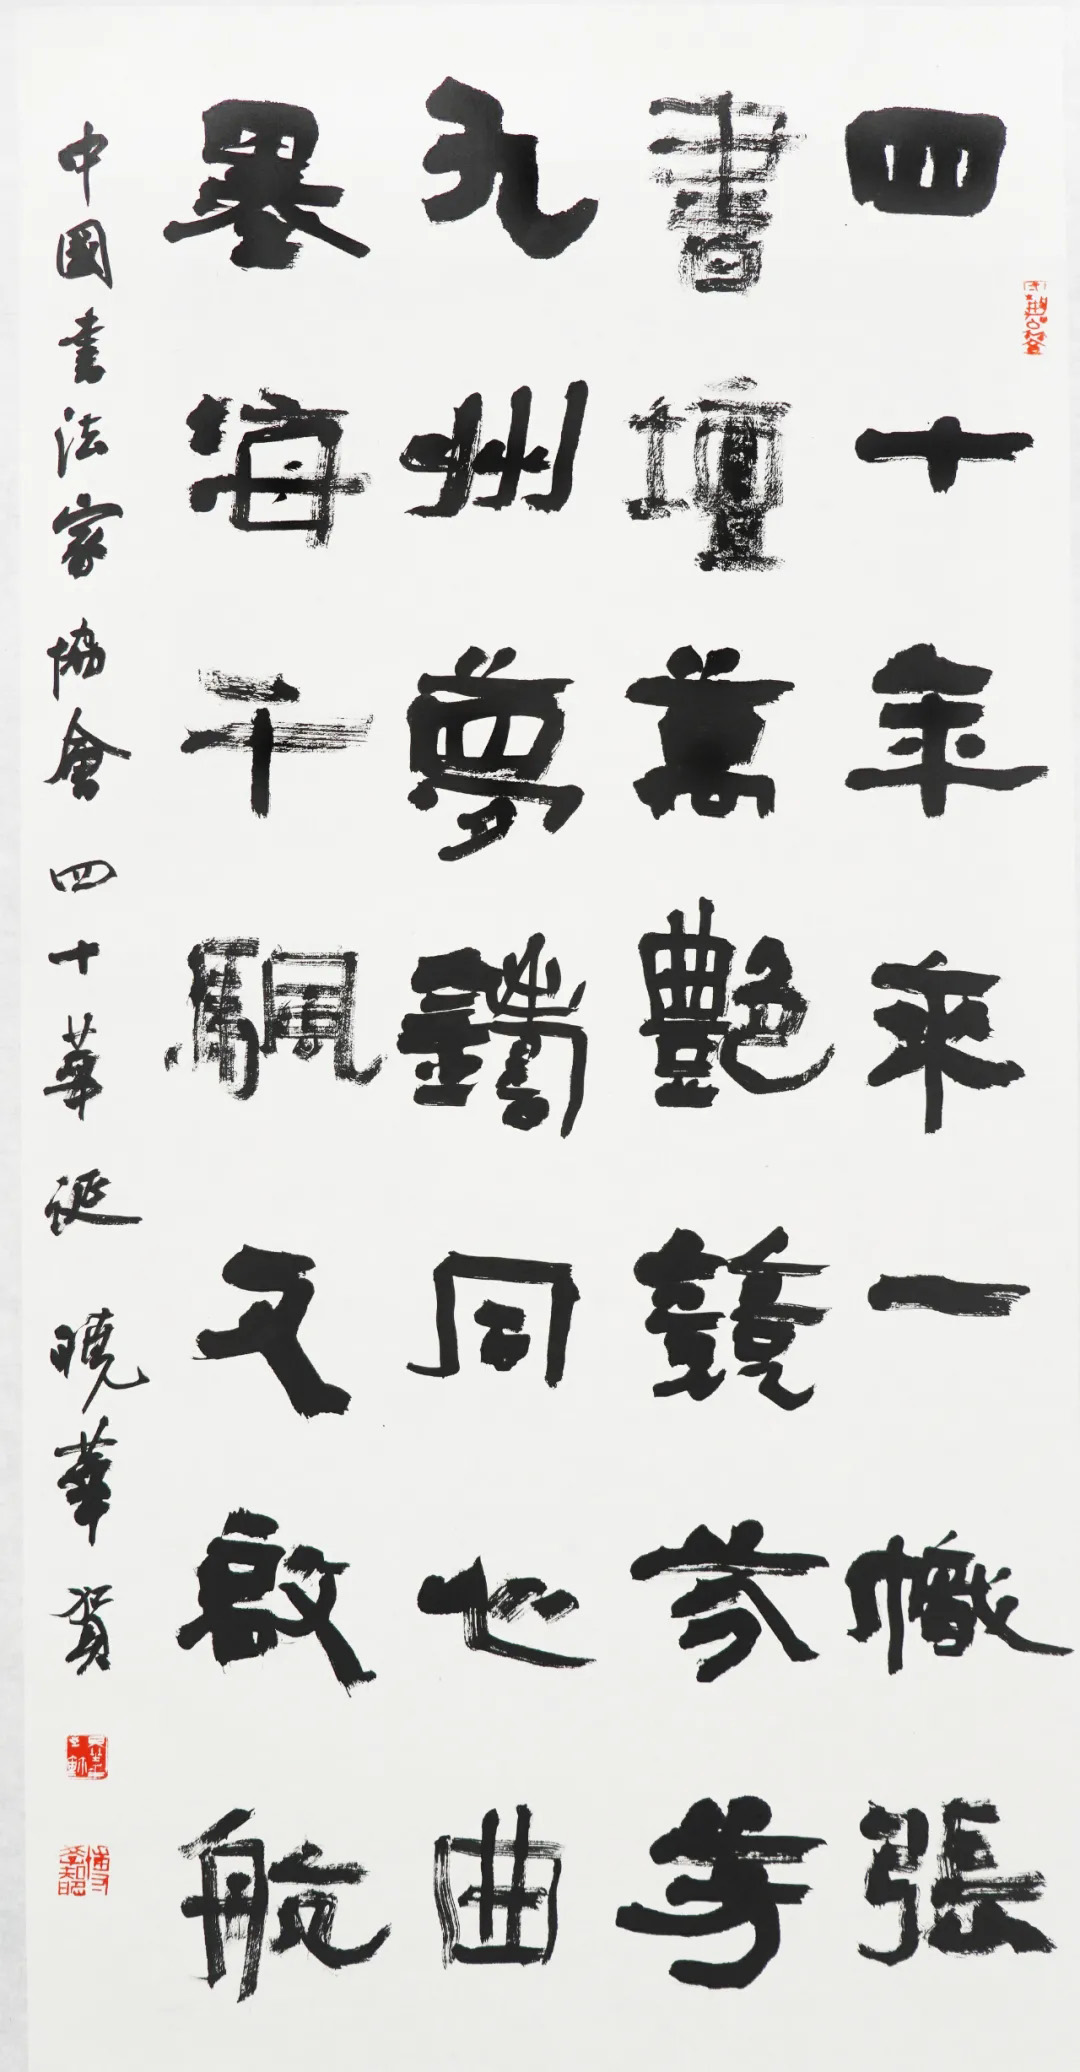 四十年来一幟張
書壇萬艷競芬芳
九州夢鑄同心曲
墨海千颿又啟航
中國書法家協會四十華誕曉華賀